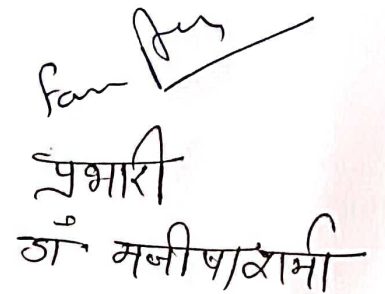 प्रभारी
डॉ मनीषा शर्मा